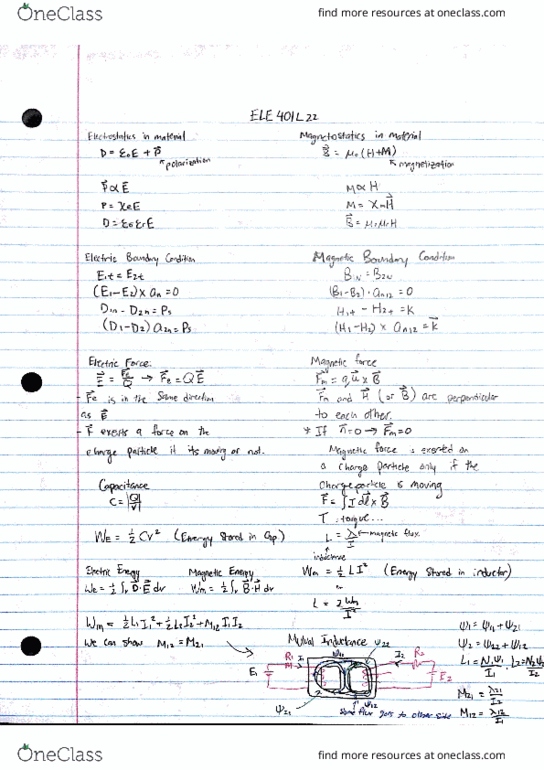 OneClass
find more resources at oneclass.com
ELE 401 L 22
Electrostatics in material
D = ε₀E + P⃗
polarization
P⃗ ∝ E
P = χeE
D = ε₀εrE
Magnetostatics in material
B⃗ = μ₀(H+M)
magnetization
M ∝ H
M = χmH⃗
B⃗ = μ₀μrH
Electric Boundary Condition
E₁t = E₂t
(E₁-E₂) × an = 0
D₁n - D₂n = Ps
(D₁-D₂) a₂n = Ps
Magnetic Boundary Condition
B₁N = B₂N
(B₁-B₂)·an₁₂ = 0
H₁t - H₂t = K
(H₁-H₂) × an₁₂ = K⃗
Electric Force:
E⃗ = Fe/Q → F⃗e = QE⃗
- F⃗e is in the same direction
as E⃗
- F⃗ exerts a force on the
charge particle if its moving or not.
Magnetic force
F⃗m = qu⃗ × B⃗
F⃗m and H⃗ (or B⃗) are perpendicular
to each other.
* If u⃗=0 → F⃗m=0
Magnetic force is exerted on
a charge particle only if the
charge particle is moving
F⃗ = ∫I dl⃗ × B⃗
T: torque...
L = λ/I ← magnetic flux.
inductance
Capacitance
C = |Q|/|V|
WE = ½CV² (Energy Stored in Cap.)
Wm = ½LI² (Energy Stored in inductor)
or
L = 2Wm/I²
Electric Energy
We = ½∫v D⃗·E⃗ dv
Magnetic Energy
Wm = ½∫v B⃗·H⃗ dv
Wm = ½L₁I₁² + ½L₂I₂² + M₁₂I₁I₂
We can show M₁₂ = M₂₁
Mutual Inductance
Ψ₁₁
Ψ₂₂
R₁
I₁
I₂
R₂
E₁
E₂
Ψ₂₁
Ψ₁₂
Some flux goes to other side
Ψ₁ = Ψ₁₁ + Ψ₂₁
Ψ₂ = Ψ₂₂ + Ψ₁₂
L₁ = N₁Ψ₁/I₁, L₂ = N₂Ψ₂/I₂
M₂₁ = λ₂₁/I₂
M₁₂ = λ₁₂/I₁
OneClass
find more resources at oneclass.com